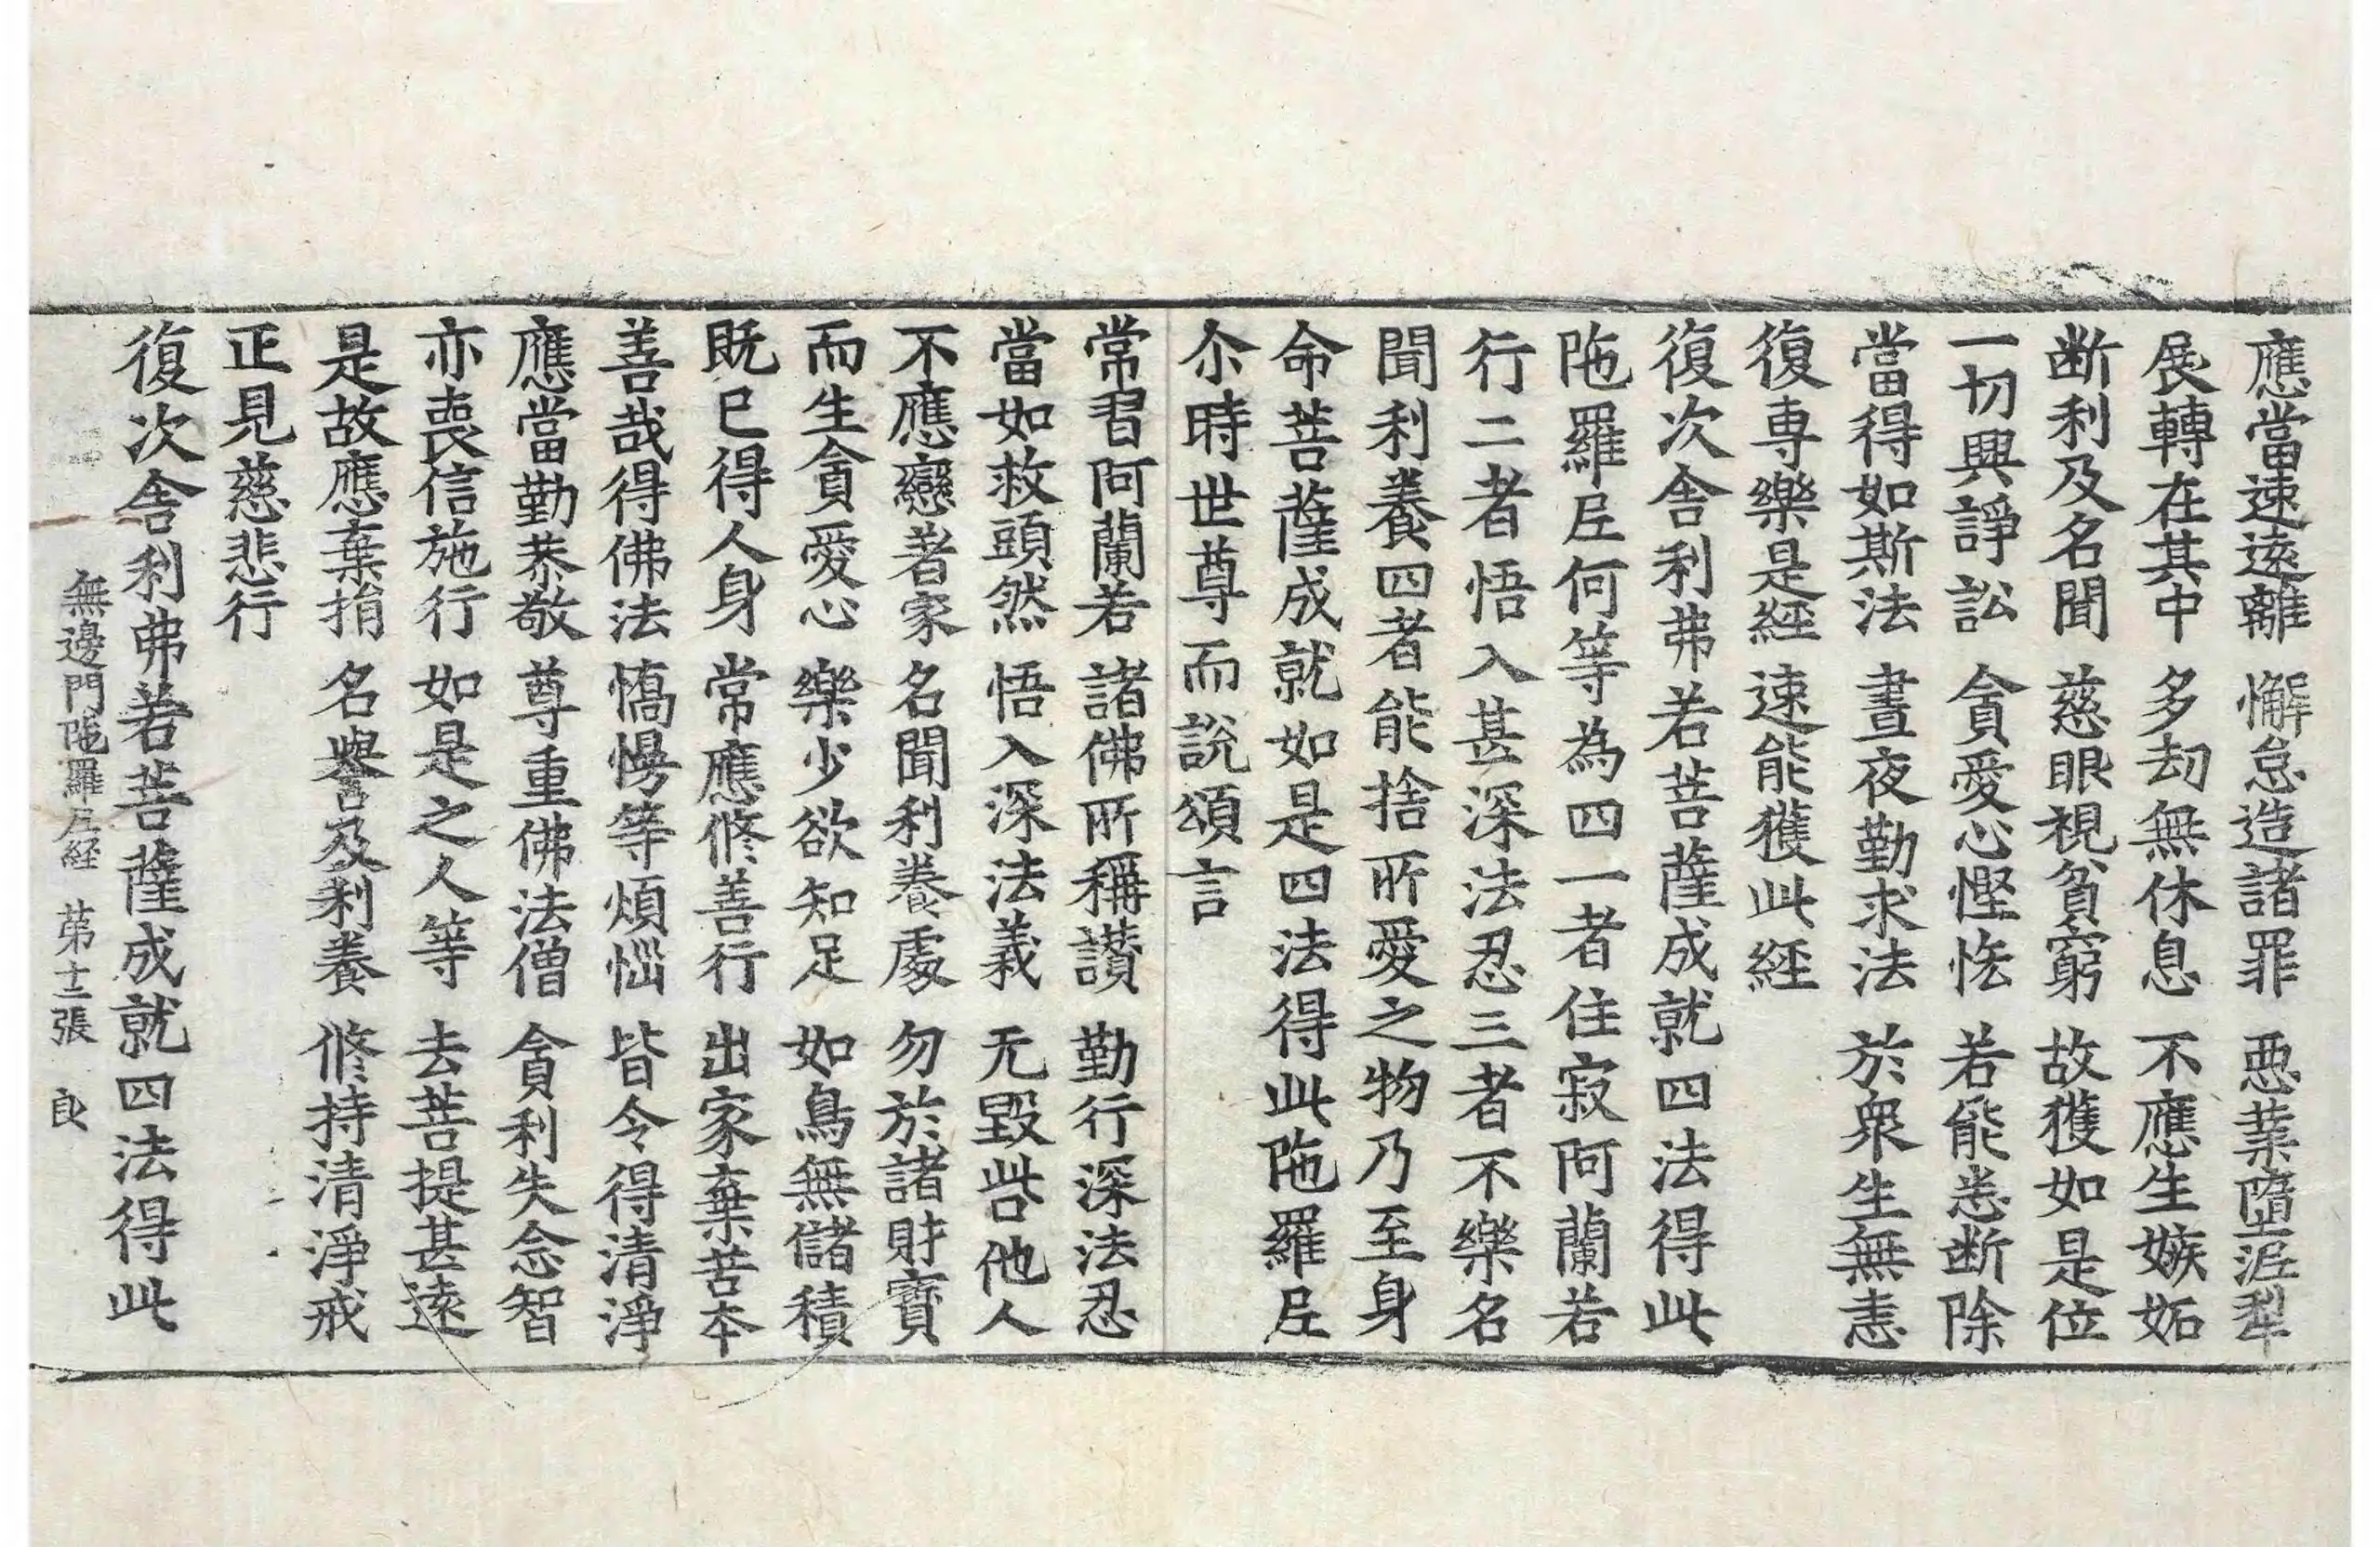 應當速遠離　懈怠造諸罪　惡業墮泥犁
展轉在其中　多劫無休息　不應生嫉妬
断利及名聞　慈眼視貧窮　故獲如是位
一切興諍訟　貪愛心慳悋　若能悉断除
當得如斯法　晝夜勤求法　於衆生無恚
復専樂是經　速能獲此經
復次舎利弗若菩薩成就四法得此
陁羅𡰱何等為四一者住寂阿蘭若
行二者悟入甚深法忍三者不樂名
聞利養四者能捨所愛之物乃至身
命菩薩成就如是四法得此陁羅𡰱
尒時世尊而說頌言
常習阿蘭若　諸佛所稱讃　勤行深法忍
當如救頭然　悟入深法義　无毀呰他人
不應戀著家　名聞利養處　勿於諸財寶
而生貪愛心　樂少欲知足　如鳥無儲積
既已得人身　常應修善行　出家棄苦本
善哉得佛法　憍慢等煩惱　皆令得清淨
應當勤恭敬　尊重佛法僧　貪利失念智
亦喪信施行　如是之人等　去菩提甚遠
是故應棄捐　名譽及利養　修持清淨戒
正見慈悲行
復次舎利弗若菩薩成就四法得此
無邊門陁羅𡰱経　苐十二張　良